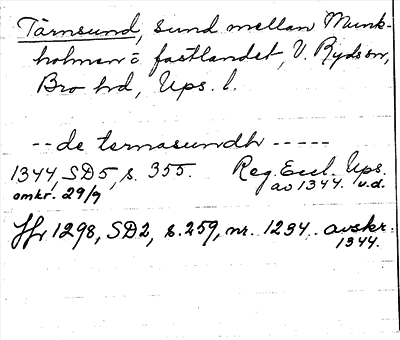 Tärnsund, sund mellan Munk-
holmen o. fastlandet, V. Ryds sn,
Bro hd, Ups. l.
-- de ternasundh -----
1344, SD 5, s. 355. Reg. Eccl. Ups.
omkr. 29/9 av 1344. v.d.
Jfr 1298, SD 2, s. 259, nr. 1234. avskr.
1344.